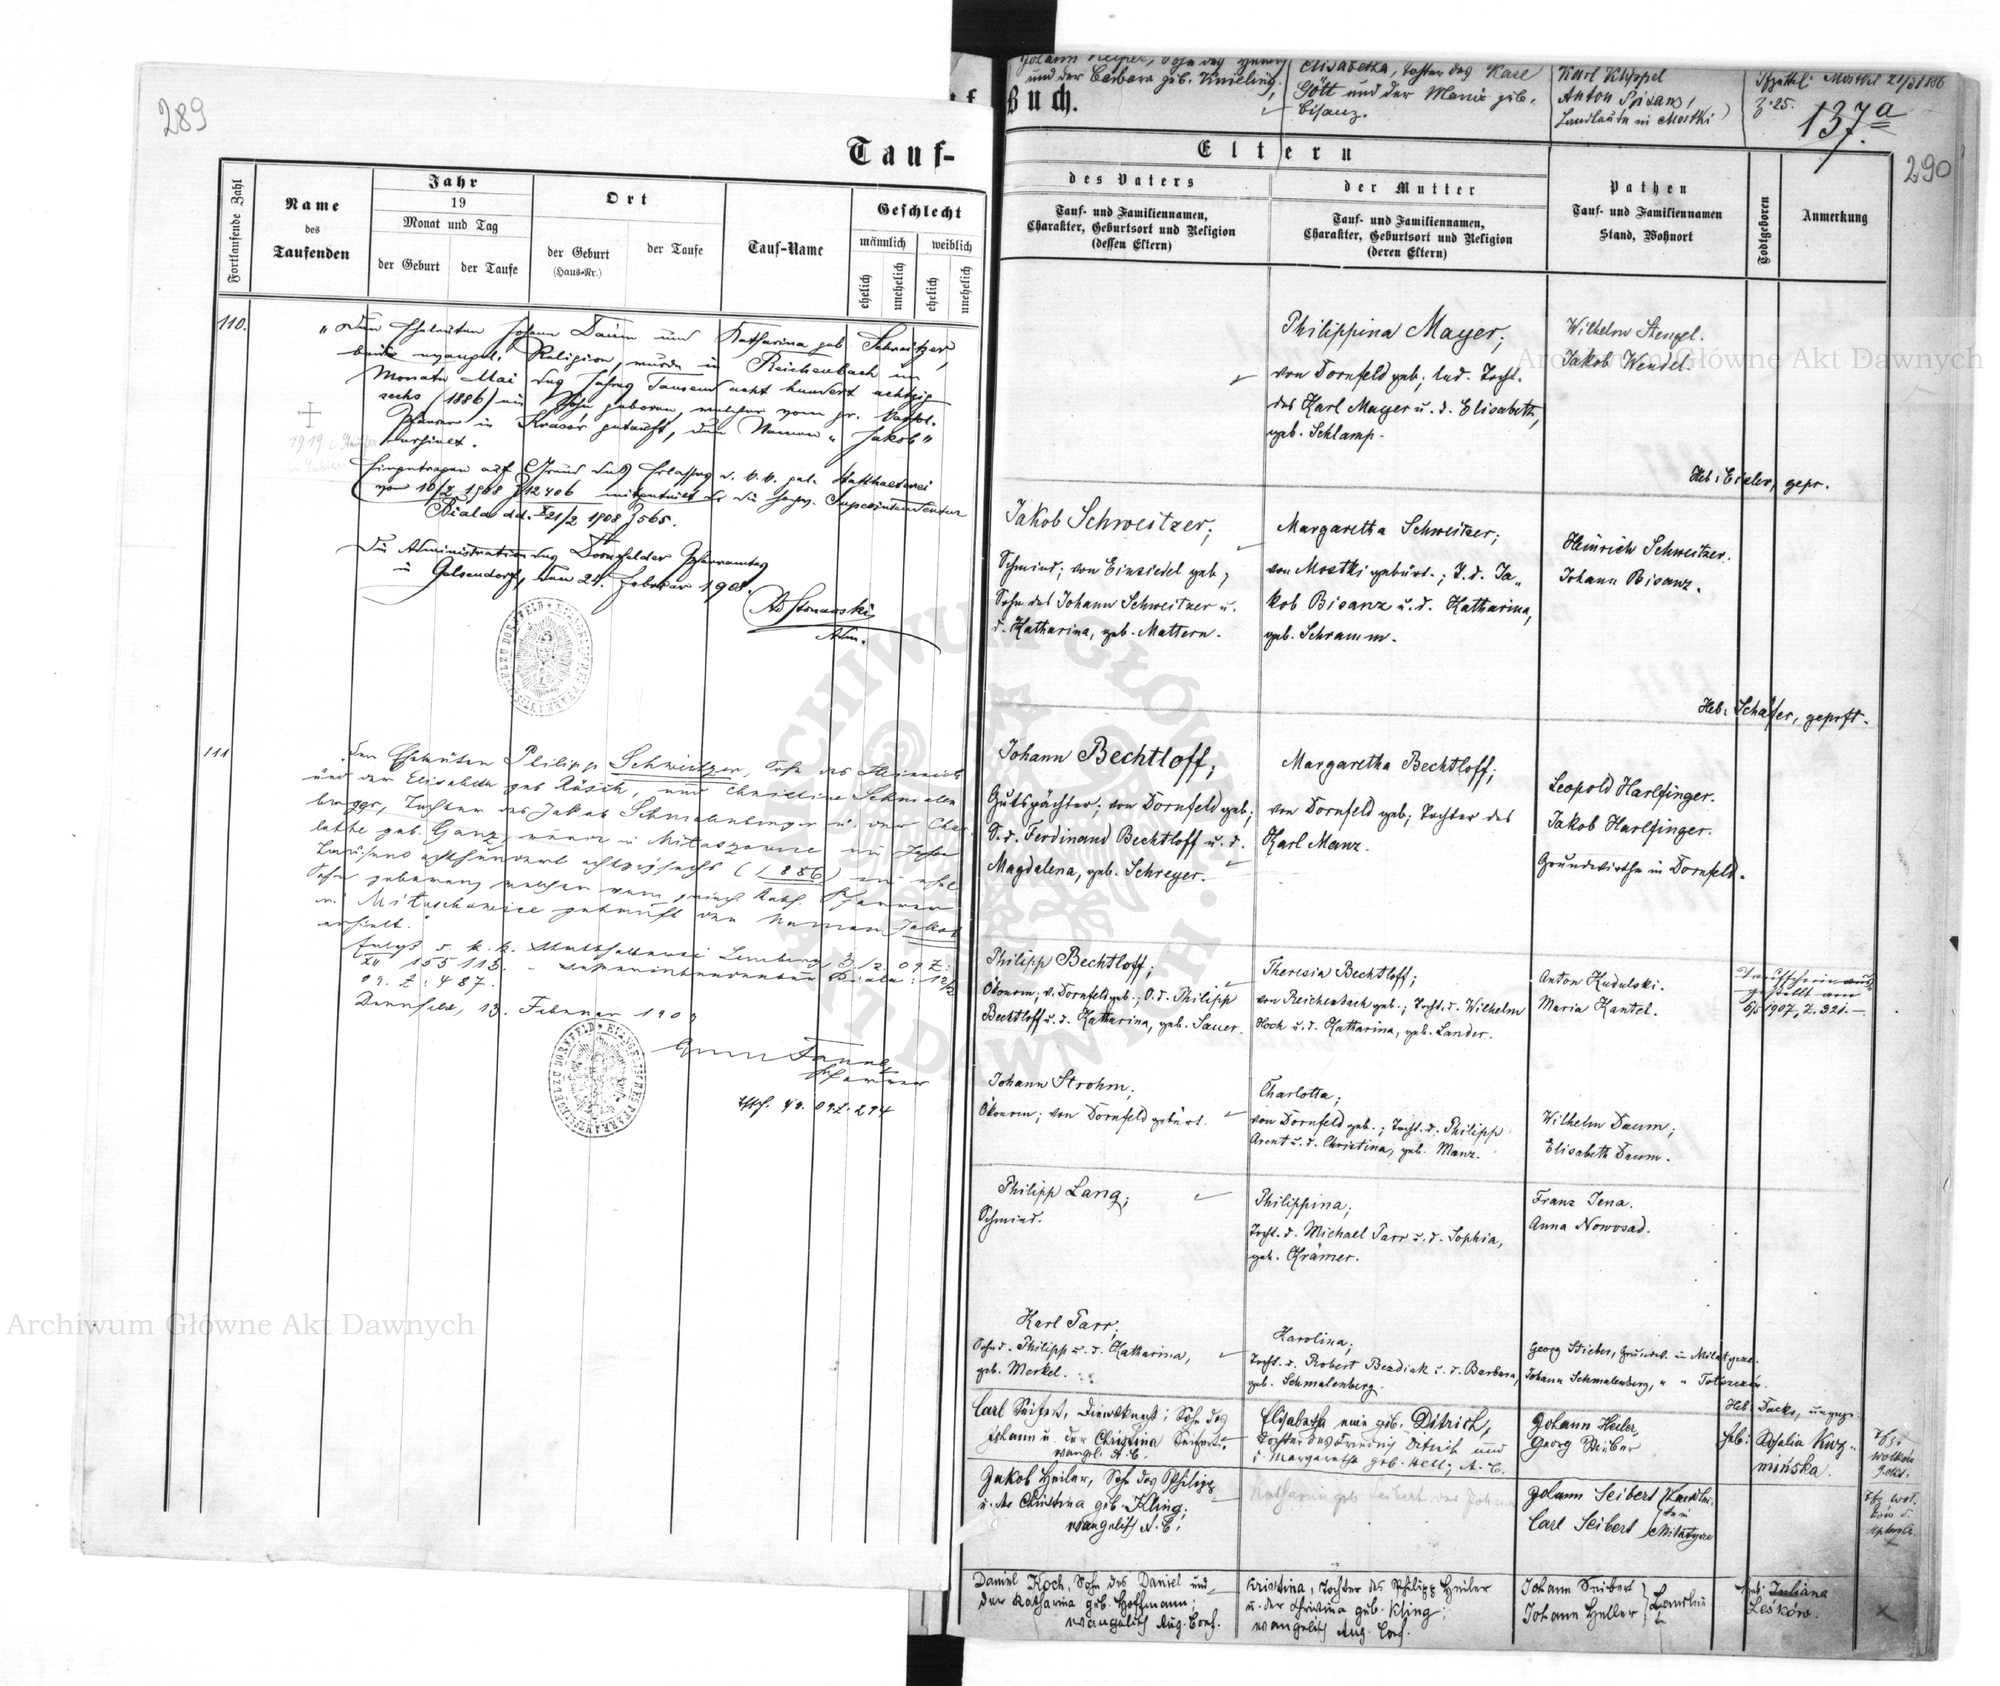 289
Tauf-
Fortlaufende Zahl
Name
des
Taufenden
Jahr
19
Monat und Tag
der Geburt
der Taufe
Ort
der Geburt
(Haus-Nr.)
der Taufe
Tauf-Name
Geschlecht
männlich
weiblich
ehelich
unehelich
ehelich
unehelich
110.
"Den Eheleuten Johann Daum und Katharina geb Schweitzer,
beide evangel. Religion, wurde in Reichenbach im
Monate Mai des Jahres Tausend acht hundert achtzig
sechs (1886) ein Sohn geboren, welcher vom gr. kathol.
Pfarrer in Krasów getauft, den Namen "Jakob"
erhielt.
Eingetragen auf Grund des Erlasses d. k. k. gal. Statthalterei
vom 10/2 1908 Z 12406 mitgeteilt d. die Superintendentur
Biala dd. 21/2 1908 Z 565.
Die Administration des Dornfelder Pfarramtes
in Gelsendorf, den 24. Februar 1908.
Adm.
111
Den Eheleuten Philipp Schweitzer, Sohn des Heinrich
und der Elisabeth geb Rüsch, und Christine Schmalen
berger, Tochter des Jakob Schmalenberger u. der Char
lotte geb. Ganz, wurde in Milaszowice im Jahre
Tausend achthundert achtzigsechs (1886) ein ehel.
Sohn geboren, welcher vom griech. kath. Pfarrer
in Milaschowice getauft den Namen Jakob
erhielt.
Erlass d. k. k. Statthalterei Lemberg 3/2 09 Z:
XII 155 113. - Superintendentur Biala: 12/2
09. Z: 487.
Dornfeld, 13. Februar 1909
Pfarrer
Buch.
Johann Keiper, Sohn des
und der Barbara geb. Knieling,
Elisabetha, Tochter des Karl
Gött und der Maria geb.
Bisanz.
Karl Klippel
Anton Bisanz,
Landleute in Mostki
Mostki 21/3 1886
Z: 25.
137.a
290
Eltern
des Vaters
Tauf- und Familiennamen,
Charakter, Geburtsort und Religion
(dessen Eltern)
der Mutter
Tauf- und Familiennamen,
Charakter, Geburtsort und Religion
(deren Eltern)
Pathen
Tauf- und Familiennamen
Stand, Wohnort
Todtgeboren
Anmerkung
Philippina Mayer;
von Dornfeld geb; led. Tocht.
des Karl Mayer u. d. Elisabeth,
geb. Schlamp.
Wilhelm Stengel.
Jakob Wendel.
Heb: Exler, gepr.
Jakob Schweitzer;
Schmied; von Einsiedel geb;
Sohn des Johann Schweitzer u.
d. Katharina, geb. Mattern.
Margaretha Schweitzer;
von Mostki gebürt.; T. d. Ja-
kob Bisanz u. d. Katharina,
geb. Schramm.
Heinrich Schweitzer.
Johann Bisanz.
Heb: Schäfer, geprft.
Johann Bechtloff;
Gutspächter; von Dornfeld geb;
S. d. Ferdinand Bechtloff u. d.
Magdalena, geb. Schreyer.
Margaretha Bechtloff;
von Dornfeld geb; Tochter des
Karl Manz.
Leopold Harlfinger.
Jakob Harlfinger.
Grundwirthe in Dornfeld.
Philipp Bechtloff;
Ökonom; v. Dornfeld geb.; S. d. Philipp
Bechtloff u. d. Katharina, geb. Sauer.
Theresia Bechtloff;
von Reichenbach geb.; Tocht. d. Wilhelm
Hoch u. d. Katharina, geb. Lander.
Anton Kudulski.
Maria Kantel.
Taufschein aus-
gestellt am
6/5 1907, Z. 321.-
Johann Strohm;
Ökonom; von Dornfeld gebürt.
Charlotta;
von Dornfeld geb.; Tocht. d. Philipp
Arent u. d. Christina, geb. Manz.
Wilhelm Daum;
Elisabeth Daum.
Philipp Lang;
Schmied.
Philippina;
Tocht. d. Michael Parr u. d. Sophia,
geb. Krämer.
Franz Jena.
Anna Nowosad.
Karl Parr;
Sohn d. Philipp u. d. Katharina,
geb. Merkel.
Karolina;
Tocht. d. Robert Bezdiak u. d. Barbara,
geb. Schmalenberg.
Georg Stieber, Grundw. in Milatycze.
Johann Schmalenberg, " " Tołszczów.
Carl Seifert, Dienstknecht; Sohn des
Johann u. der Christina Seifert,
evangl. A. C.
Elisabeth geb. Ditrich,
Tochter des Friedrich Ditrich und
d. Margaretha geb. Hell; A. C.
Johann Heiler,
Georg Stüber
Heb: Rosalia Kuz-
mińska.
Jakob Heiler, Sohn des Philipp
u. der Christina geb. Kling;
evangelisch A. C.
Johann Seibert
Carl Seibert
Milatycze
Daniel Koch, Sohn des Daniel und
der Katharina geb. Hoffmann;
evangelisch Aug. Conf.
Kristina, Tochter des Philipp Heiler
u. der Christina geb. Kling;
evangelisch Aug. Conf.
Johann Seibert
Johann Heller
Heb: Juliana
Leśków.
Archiwum Główne Akt Dawnych
Archiwum Główne Akt Dawnych
ARCHIWUM GŁÓWNE AKT DAWNYCH